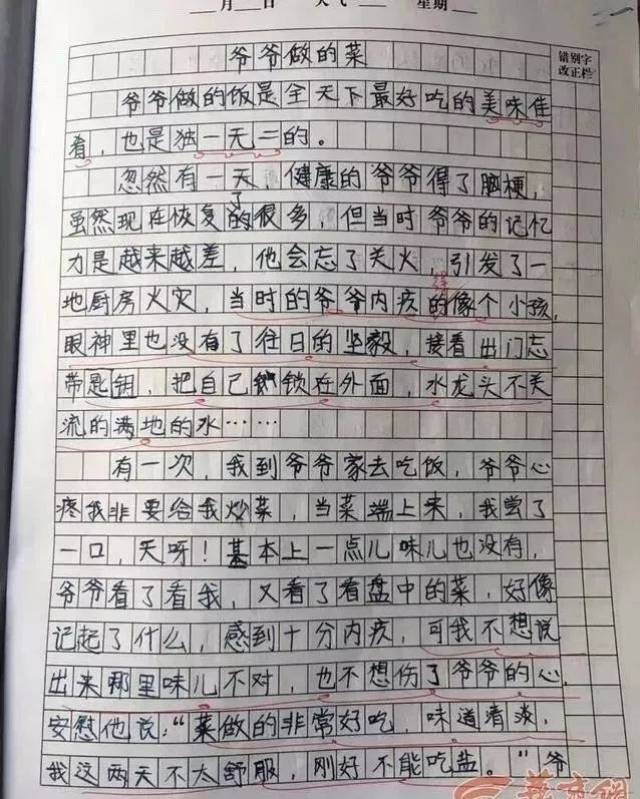 月 日 天气 星期
错别字
改正栏
爷爷做的菜
爷爷做的饭是全天下最好吃的美味佳
肴，也是独一无二的。
忽然有一天，健康的爷爷得了脑梗，
虽然现在恢复的很多，但当时爷爷的记忆
力是越来越差，他会忘了关火，引发了一
地厨房火灾，当时的爷爷内疚的像个小孩，
眼神里也没有了往日的坚毅，接着出门忘
带匙钥，把自己锁在外面，水龙头不关
流的满地的水……
有一次，我到爷爷家去吃饭，爷爷心
疼我非要给我炒菜，当菜端上来，我尝了
一口，天呀！基本上一点儿味儿也没有，
爷爷看了看我，又看了看盘中的菜，好像
记起了什么，感到十分内疚，可我不想说
出来那里味儿不对，也不想伤了爷爷的心，
安慰他说：“菜做的非常好吃，味道清淡，
我这两天不太舒服，刚好不能吃盐。”爷